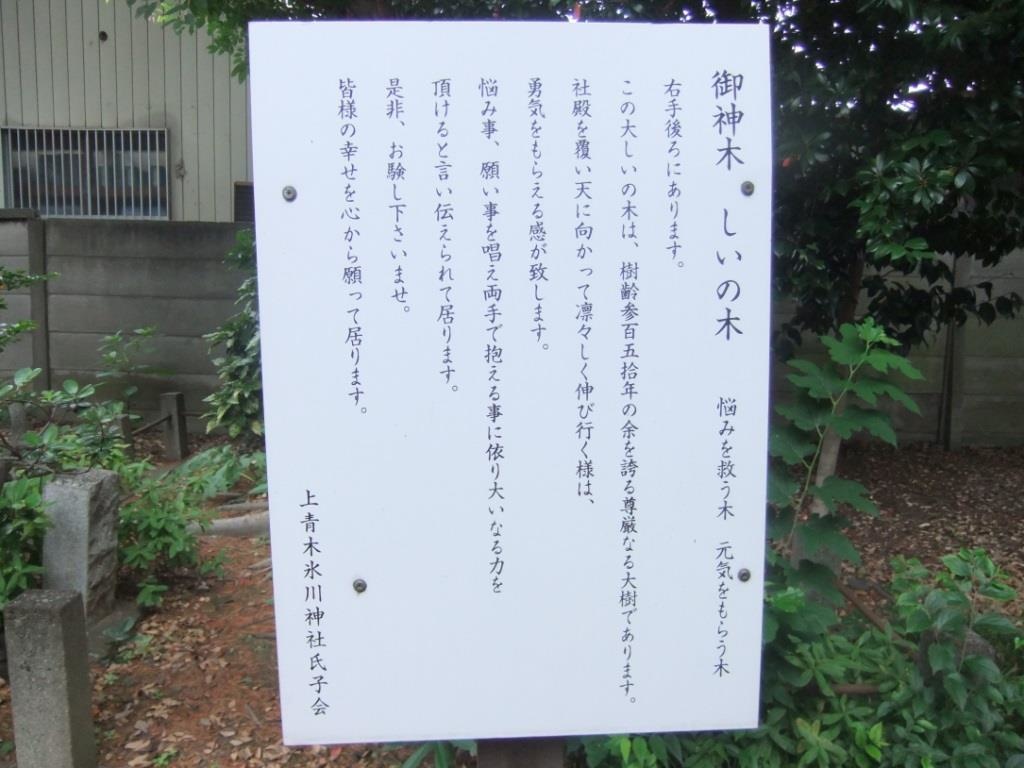 御神木　しいの木　　悩みを救う木　元気をもらう木
右手後ろにあります。
この大しいの木は、樹齢参百五拾年の余を誇る尊厳なる大樹であります。
社殿を覆い天に向かって凛々しく伸び行く様は、
勇気をもらえる感が致します。
悩み事、願い事を唱え両手で抱える事に依り大いなる力を
頂けると言い伝えられて居ります。
是非、お験し下さいませ。
皆様の幸せを心から願って居ります。
上青木氷川神社氏子会